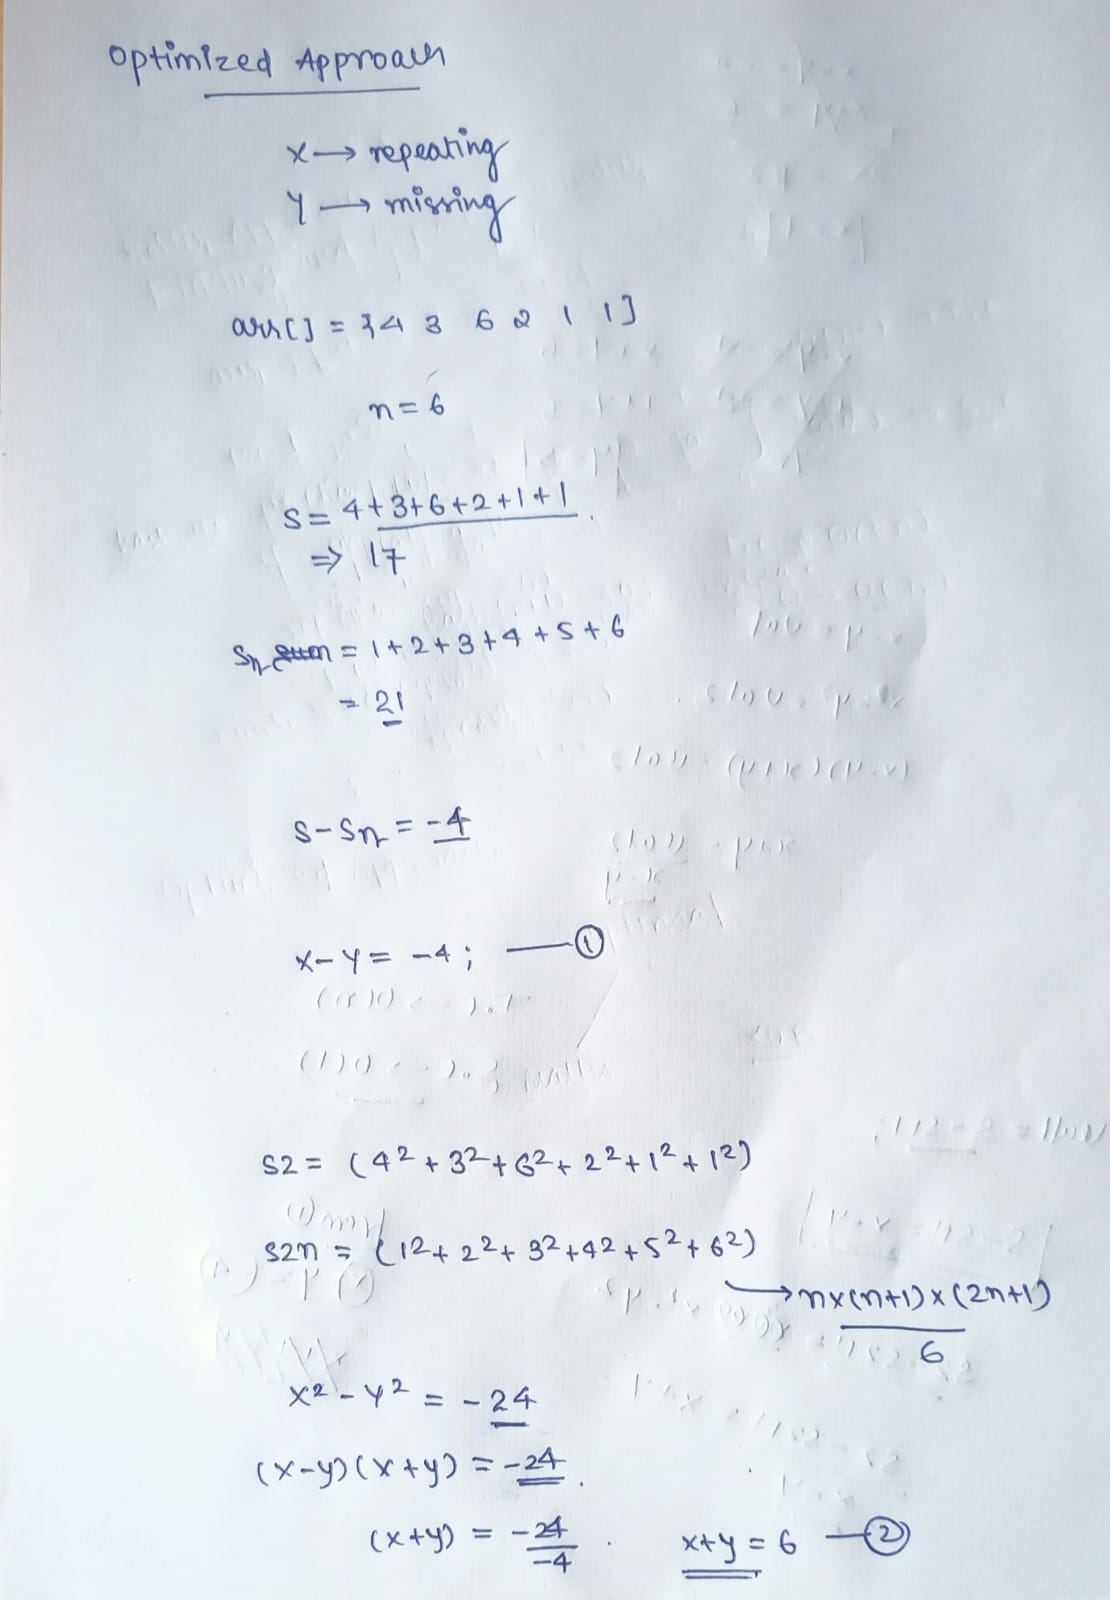 Optimized Approach
X → repeating
Y → missing
arr[] = {4 3 6 2 1 1]
n = 6
S = 4+3+6+2+1+1
⇒ 17
Sn = 1+2+3+4+5+6
= 21
S-Sn = -4
X-Y = -4; — ①
S2 = (4² + 3² + 6² + 2² + 1² + 1²)
S2n = (1² + 2² + 3² + 4² + 5² + 6²)
→ n×(n+1)×(2n+1)
6
X² - Y² = -24
(X-y)(X+y) = -24.
(X+y) = -24/-4 . X+y = 6 — ②